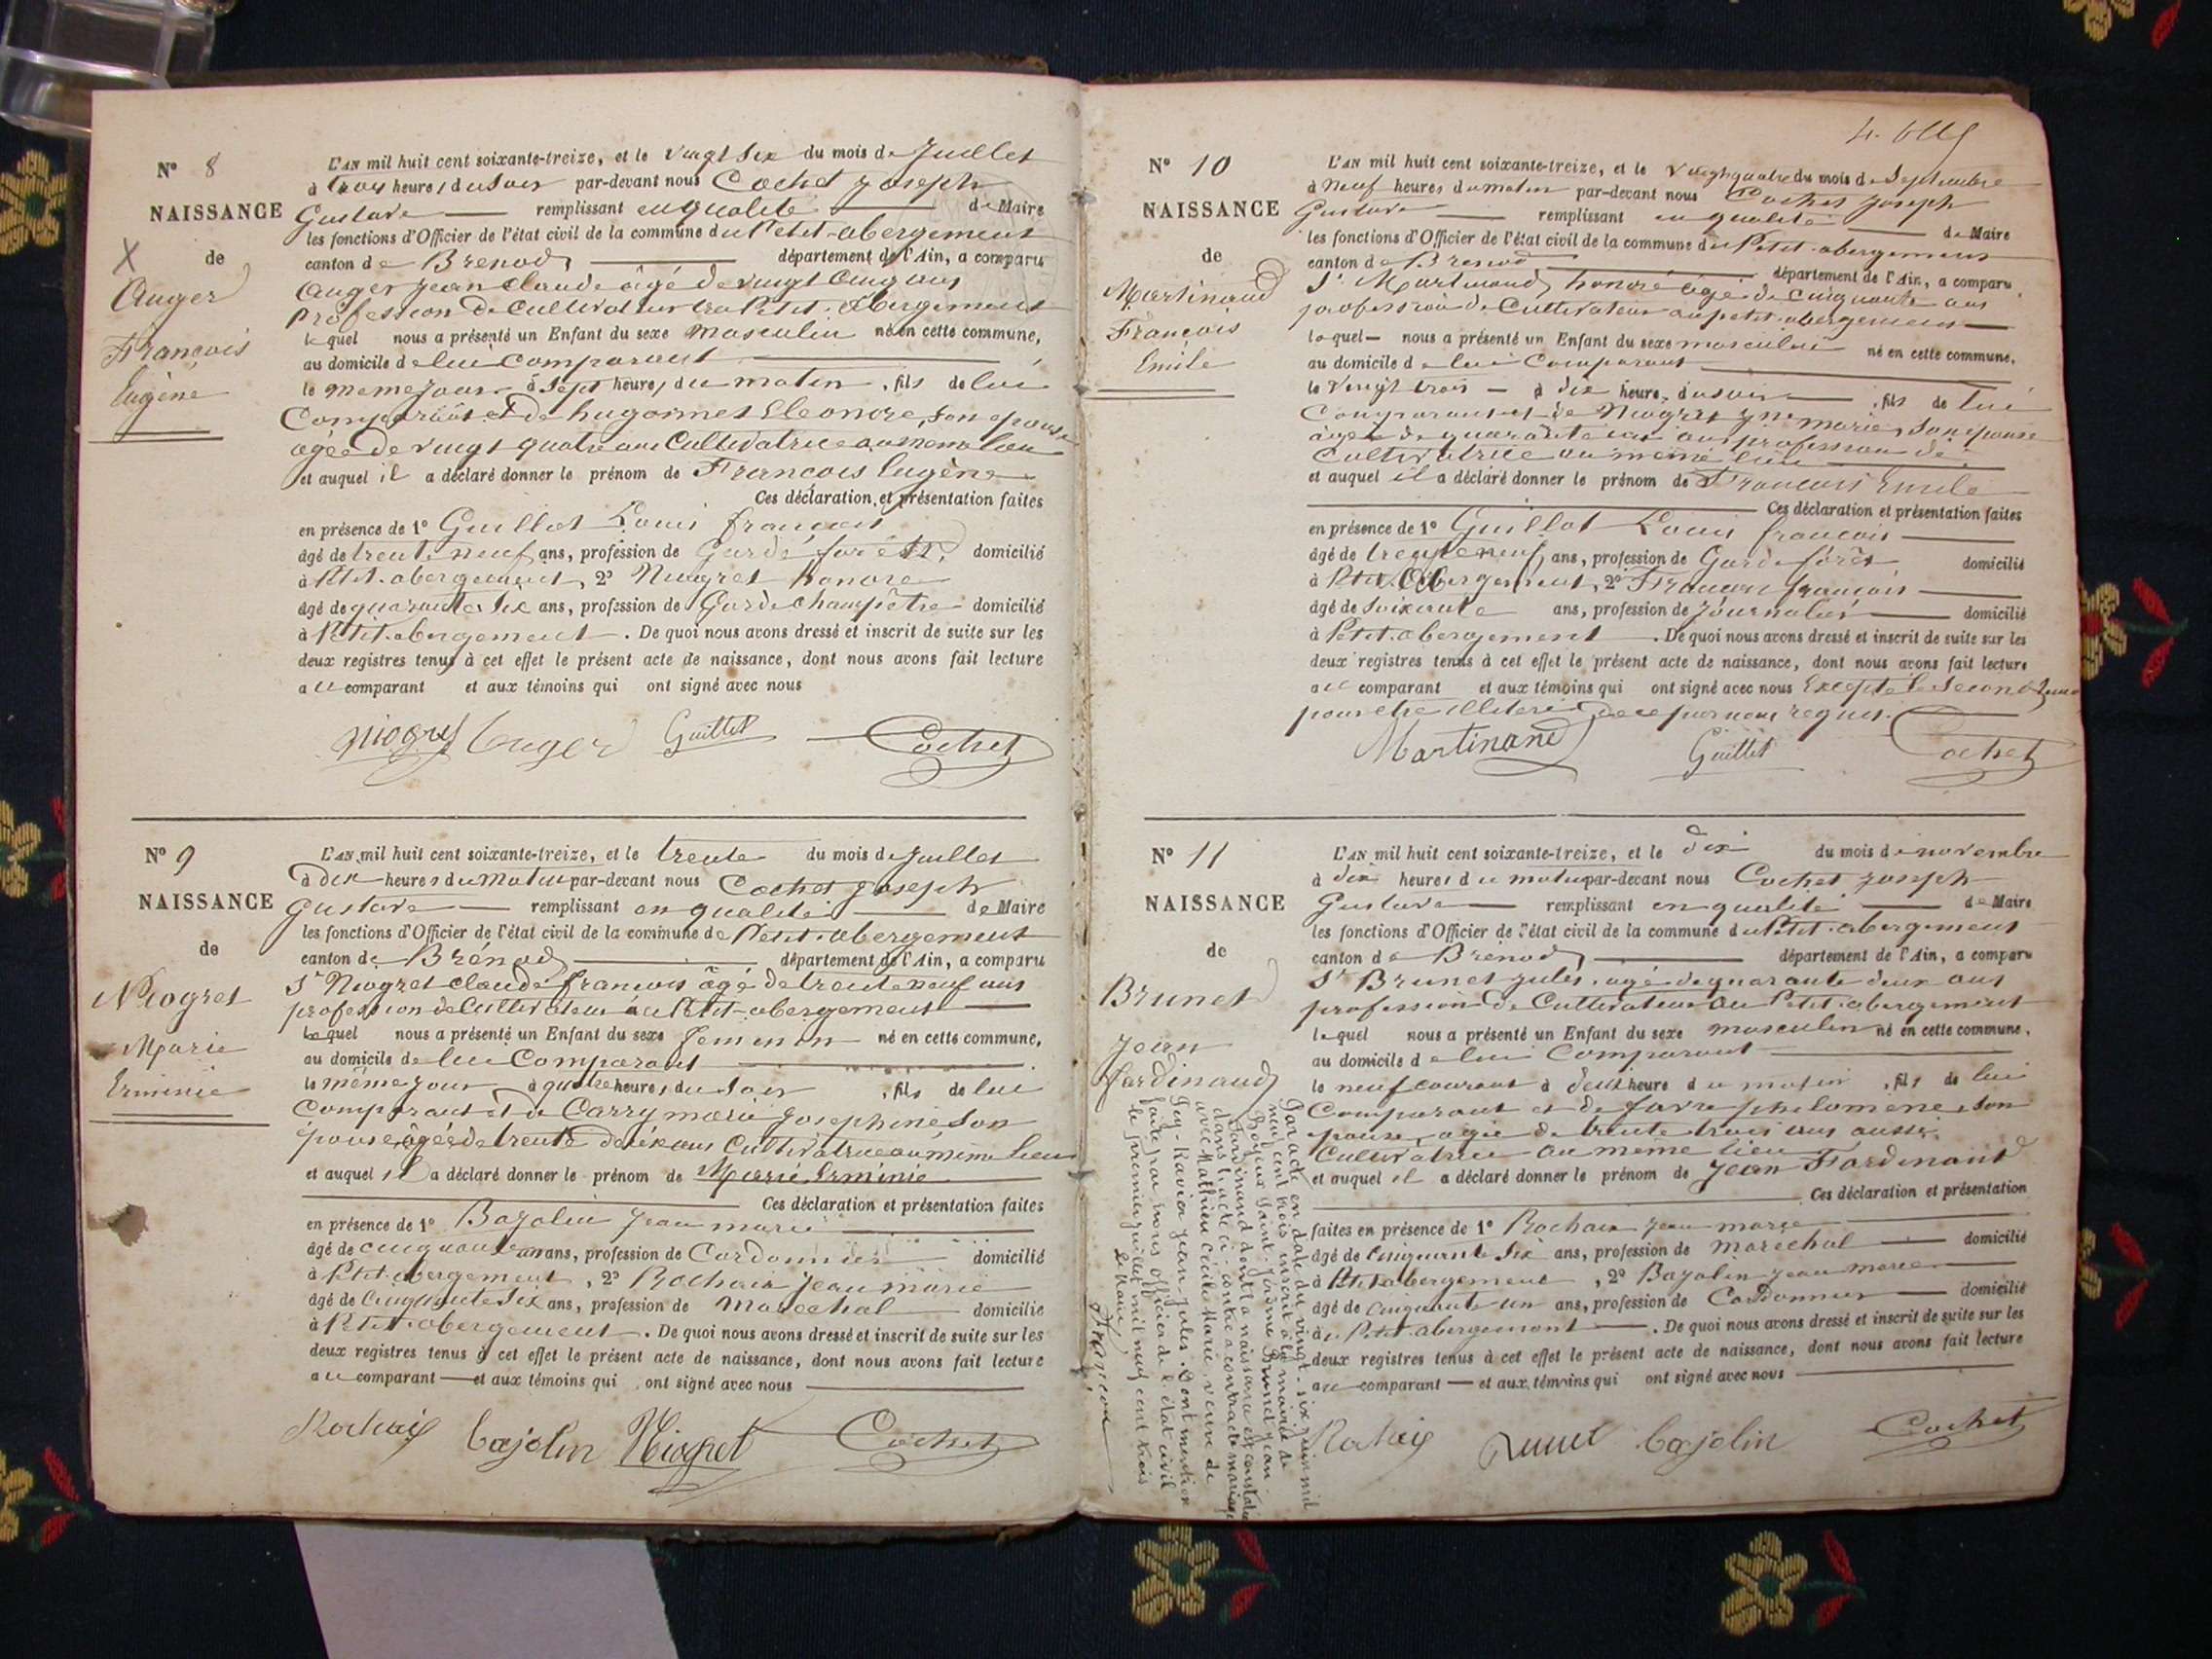 N° 8
NAISSANCE
de
Auger
François
Eugène
L'AN mil huit cent soixante-treize, et le vingt six du mois de Juillet
à trois heures du soir par-devant nous Cochet Joseph
Gustave remplissant en qualité de Maire
les fonctions d'Officier de l'état civil de la commune du Petit-abergement
canton de Brenod, département de l'Ain, a comparu
Auger jean claude âgé de vingt cinq ans
profession de cultivateur au Petit-abergement
lequel nous a présenté un Enfant du sexe masculin né en cette commune,
au domicile de lui comparant
le meme jour à sept heures du matin, fils de lui
Comparant et de hugonnet Eleonore, son epouse
agée de vingt quatre ans Cultivatrice au meme lieu
et auquel il a déclaré donner le prénom de François Eugène
Ces déclaration et présentation faites
en présence de 1° Guillot Louis françois
âgé de trente neuf ans, profession de Garde forêts domicilié
à Petit-abergement, 2° Niogret Honore
âgé de quarante six ans, profession de Garde champêtre domicilié
à Petit-abergement. De quoi nous avons dressé et inscrit de suite sur les
deux registres tenus à cet effet le présent acte de naissance, dont nous avons fait lecture
au comparant et aux témoins qui ont signé avec nous
Niogret Auger Guillot Cochet
N° 9
NAISSANCE
de
Niogret
Marie
Erminie
L'AN mil huit cent soixante-treize, et le trente du mois de Juillet
à dix heures du matin par-devant nous Cochet Joseph
Gustave remplissant en qualité de Maire
les fonctions d'Officier de l'état civil de la commune de Petit-abergement
canton de Brénod département de l'Ain, a comparu
Sr Niogret claude françois âgé de trente neuf ans
profession de Cultivateur au Petit-abergement
lequel nous a présenté un Enfant du sexe feminin né en cette commune,
au domicile de lui Comparant
le même jour à quatre heures du soir, fils de lui
Comparant et de Carry marie Josephine son
épouse âgée de trente ans Cultivatrice au même lieu
et auquel il a déclaré donner le prénom de Marie Erminie
Ces déclaration et présentation faites
en présence de 1° Bajolin Jean marie
âgé de cinquante un ans, profession de Cordonnier domicilié
à Petit-abergement, 2° Rochaix jean marie
âgé de Cinquante six ans, profession de Marechal domicilié
à Petit-abergement. De quoi nous avons dressé et inscrit de suite sur les
deux registres tenus à cet effet le présent acte de naissance, dont nous avons fait lecture
au comparant et aux témoins qui ont signé avec nous
Rochaix bajolin Niogret Cochet
N° 10
NAISSANCE
de
Martinand
François
Emile
L'AN mil huit cent soixante-treize, et le vingt quatre du mois de Septembre
à neuf heures du matin par-devant nous Cochet Joseph
Gustave remplissant en qualité de Maire
les fonctions d'Officier de l'état civil de la commune du Petit-abergement
canton de Brenod département de l'Ain, a comparu
Sr Martinand honoré âgé de cinquante ans
profession de Cultivateur au petit-abergement
lequel nous a présenté un Enfant du sexe masculin né en cette commune,
au domicile de lui Comparant
le vingt trois à dix heures du soir, fils de lui
Comparant et de Niogret marie, son epouse
âgée de quarante ans profession de
Cultivatrice au meme lieu
et auquel il a déclaré donner le prénom de François Emile
Ces déclaration et présentation faites
en présence de 1° Guillot Louis françois
âgé de trente neuf ans, profession de Garde forêts domicilié
à Petit-Abergement, 2° françois
âgé de soixante ans, profession de Journalier domicilié
à Petit-abergement. De quoi nous avons dressé et inscrit de suite sur les
deux registres tenus à cet effet le présent acte de naissance, dont nous avons fait lecture
au comparant et aux témoins qui ont signé avec nous Excepté le second
pour etre illiteré de ce par nous requis.
Martinand Guillot Cochet
N° 11
NAISSANCE
de
Brunet
Jean
fardinand
L'AN mil huit cent soixante-treize, et le dix du mois de novembre
à dix heures du matin par-devant nous Cochet Joseph
Gustave remplissant en qualité de Maire
les fonctions d'Officier de l'état civil de la commune du Petit-abergement
canton de Brénod département de l'Ain, a comparu
Sr Brunet jules, agé de quarante deux ans
profession de Cultivateur au Petit-abergement
lequel nous a présenté un Enfant du sexe masculin né en cette commune,
au domicile de lui Comparant
le neuf courant à deux heure du matin, fils de lui
Comparant et de favre philomene, son
epouse, agée de trente trois ans aussi
Cultivatrice au meme lieu
et auquel il a déclaré donner le prénom de Jean Fardinand
Ces déclaration et présentation
faites en présence de 1° Rochaix Jean marie
âgé de Cinquante six ans, profession de maréchal domicilié
à Petit-abergement, 2° Bajolin jean marie
âgé de Cinquante un ans, profession de Cordonnier domicilié
à Petit-abergement. De quoi nous avons dressé et inscrit de suite sur les
deux registres tenus à cet effet le présent acte de naissance, dont nous avons fait lecture
au comparant et aux témoins qui ont signé avec nous
Rochaix Brunet bajolin Cochet
Par acte en date du vingt-six juin mil
neuf cent trois inscrit à la mairie de
Brunet Jean
fardinand dont la naissance est constatée
dans l'acte ci-contre a contracté mariage
avec Mathieu Cécile Marie, veuve de
Jean-Jules. Dont mention
faite par nous officier de l'état civil
le premier juillet mil neuf cent trois
Le Maire,